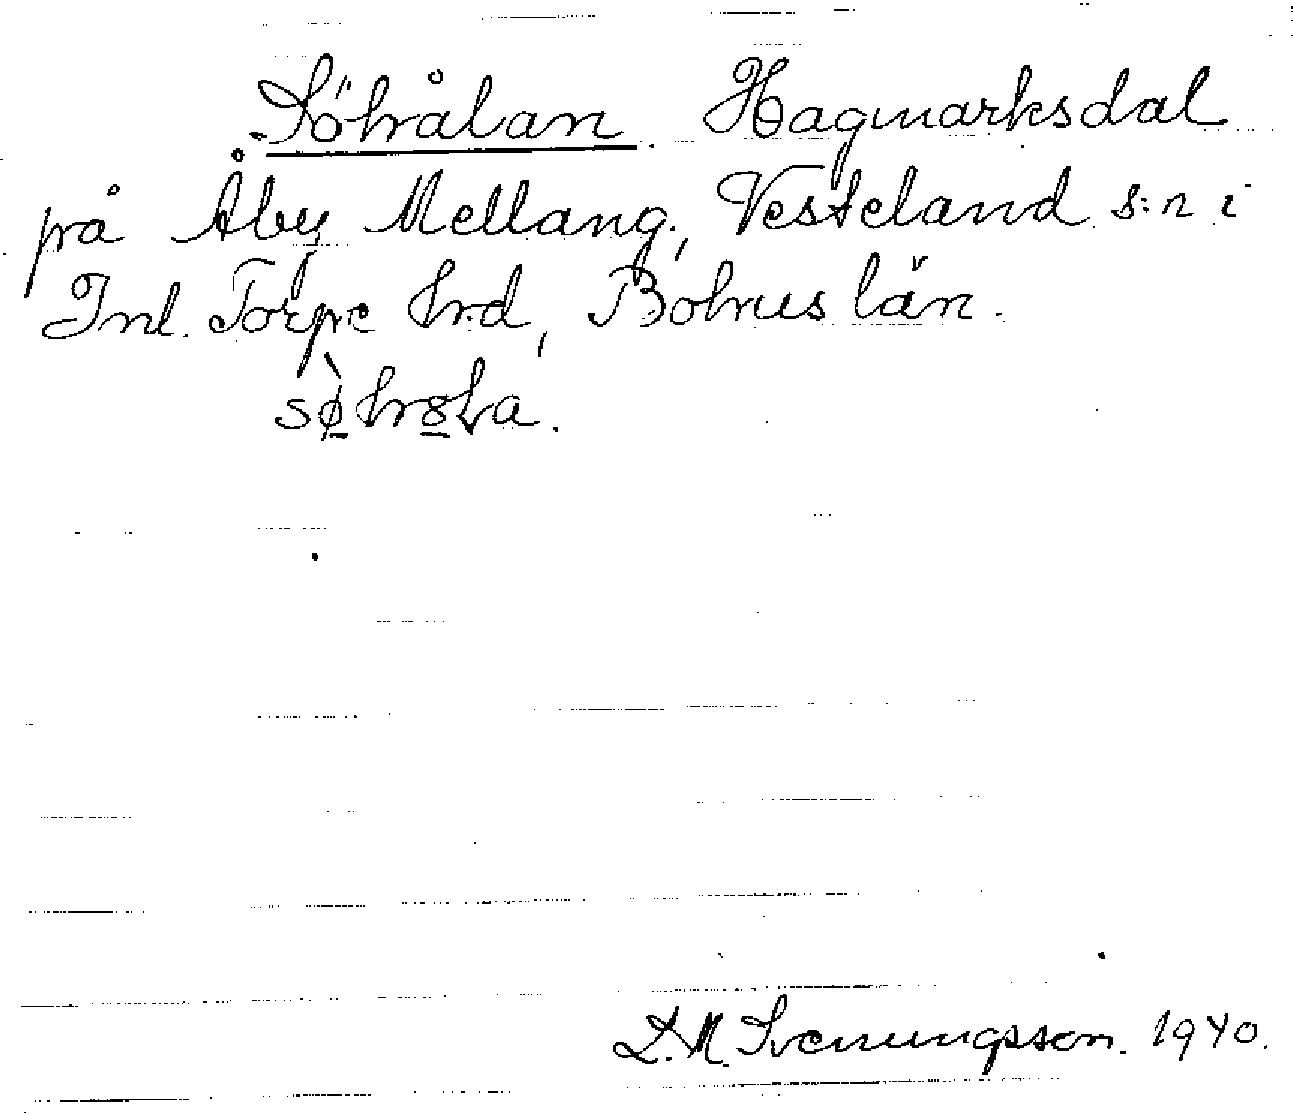 Söhålan Hagmarksdal
på Åby Mellang., Västerland s:n i
Inl. Torpe hrd, Bohus län.
D. M. Svenungsson. 1940.